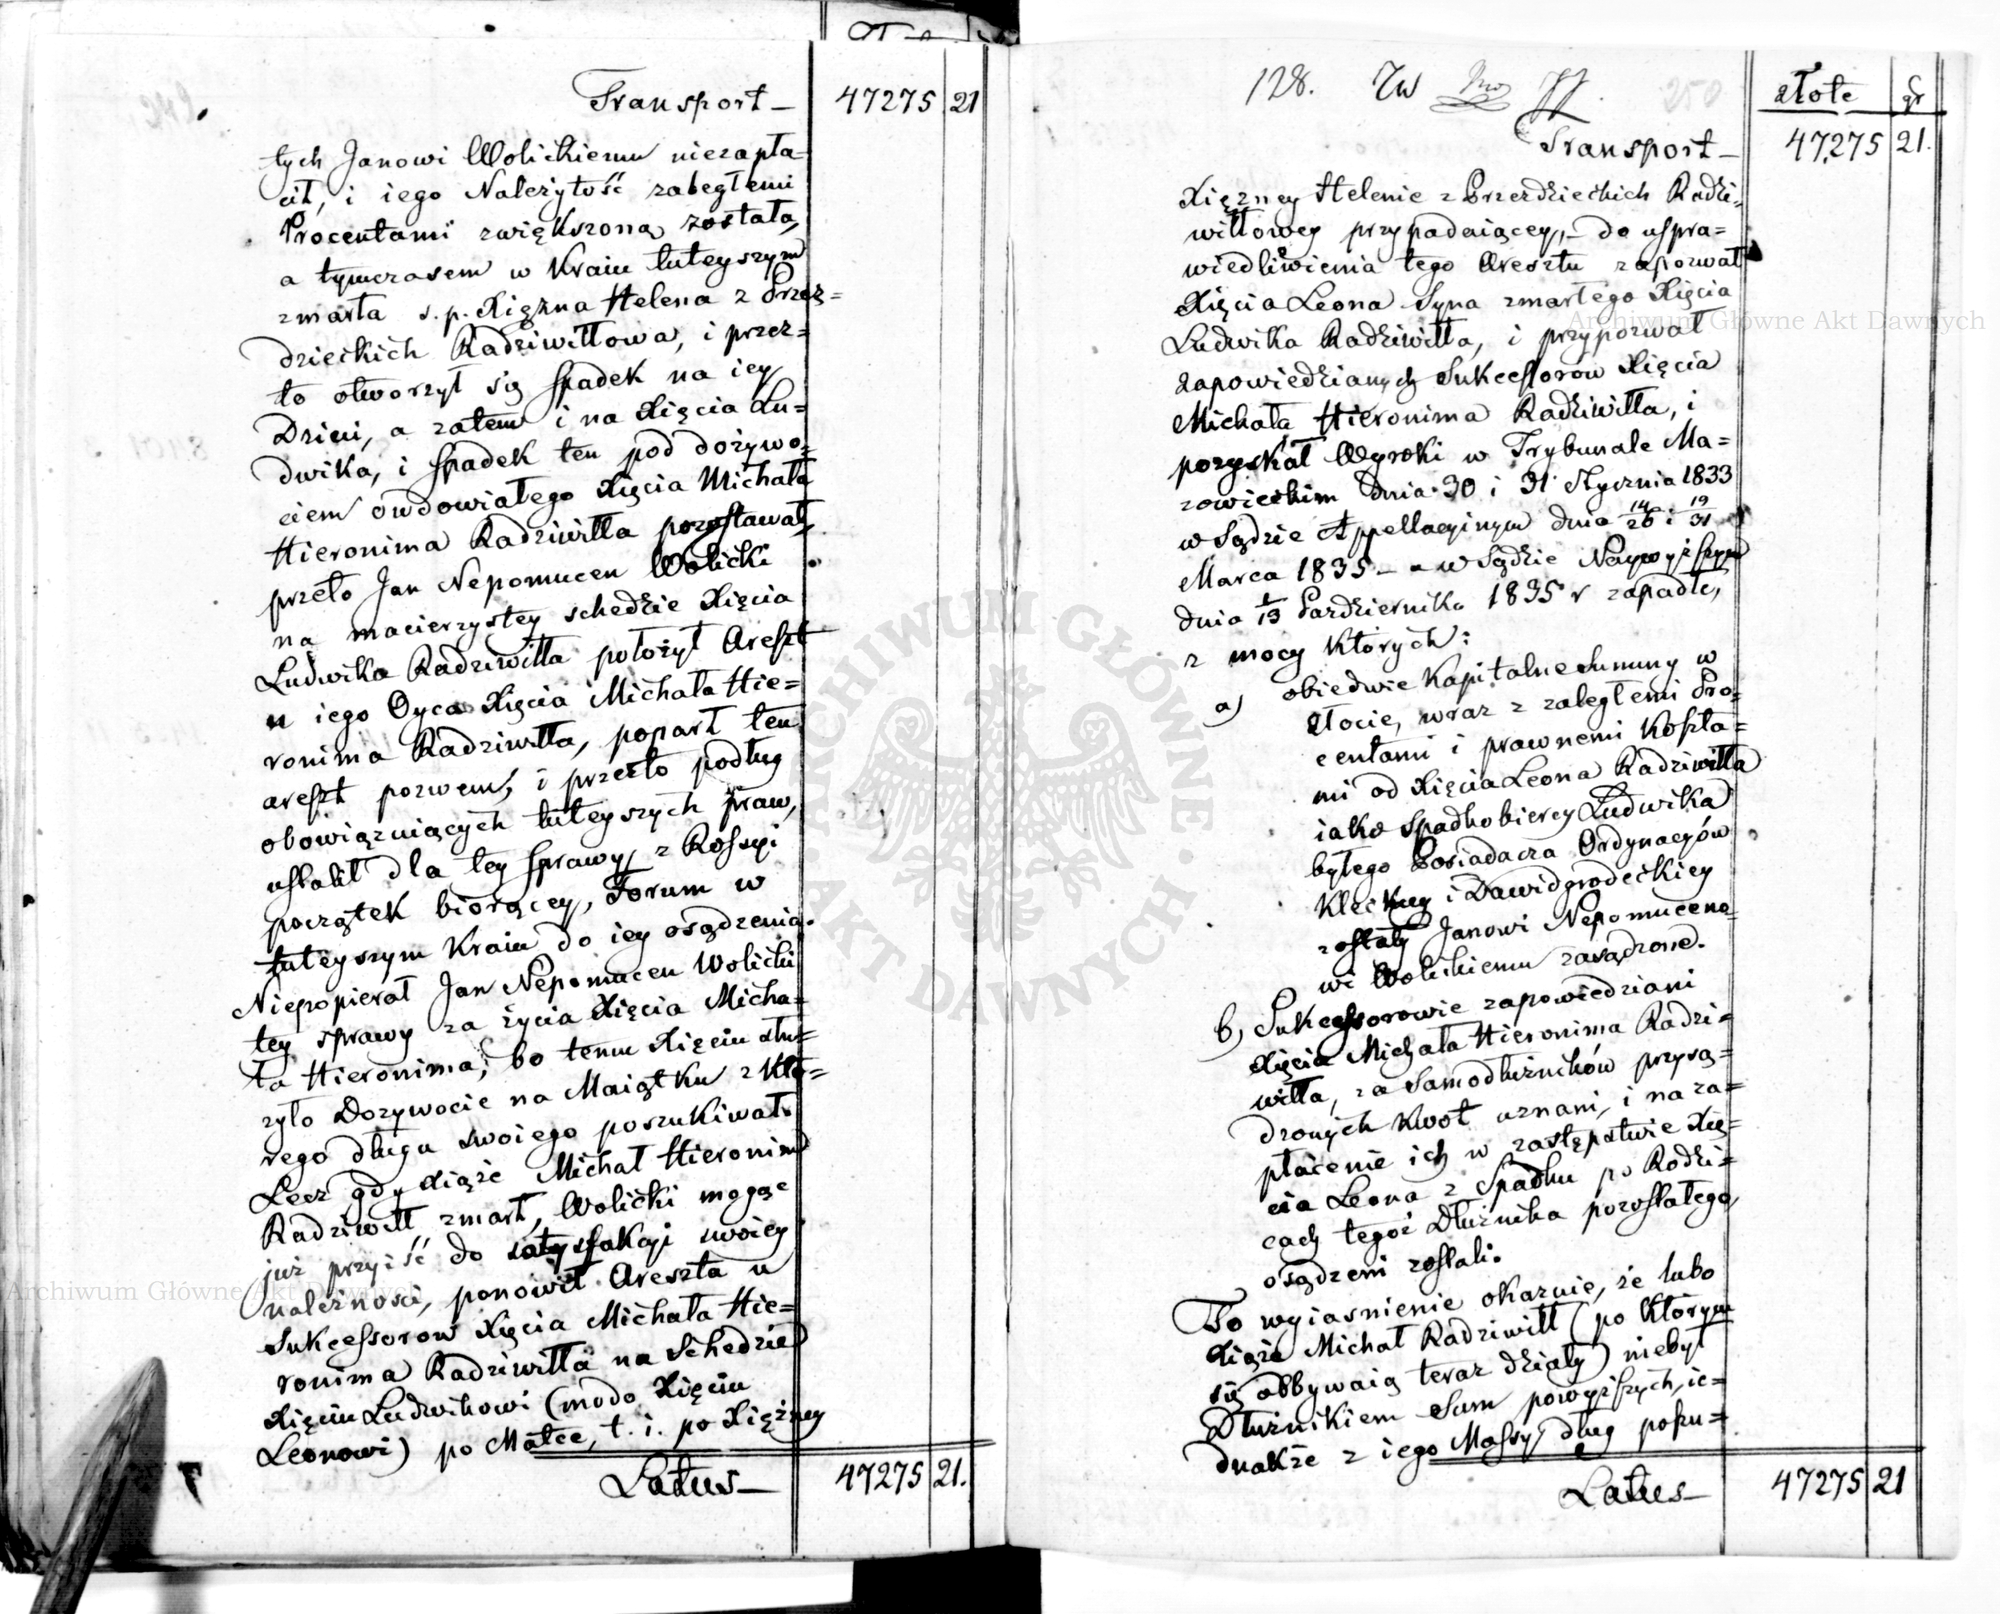 Transport — 47275 21
tych Janowi Wolickiemu niezapła-
cił, i iego Należytość zaległemi
Procentami zwiększoną została,
a tymczasem w Kraiu tuteyszym
zmarła s. p. Xiężna Helena z Przez=
dzieckich Radziwiłłowa, i przez=
to otworzył się spadek na iey
Dzieci, a zatem i na Xięcia Lu=
dwika, i spadek ten pod dożywo=
ciem owdowiałego Xięcia Michała
Hieronima Radziwiłła pozostawał,
przeto Jan Nepomucen Wolicki
na macierzystey schedzie Xięcia
Ludwika Radziwiłła położył Areszt
u iego Oyca Xięcia Michała Hie=
ronima Radziwiłła, poparł ten
areszt pozwem, i przezto podług
obowiązuiących tuteyszych praw,
ustalił dla tey sprawy z Rossyi
początek biorącey, Forum w
tuteyszym Kraiu do iey osądzenia.
Niepopierał Jan Nepomucen Wolicki
tey sprawy za życia Xięcia Micha=
ła Hieronima, bo temu Xięciu słu=
żyło Dożywocie na Maiątku z Któ=
rego długu swoiego poszukiwał.
Lecz gdy Xiąże Michał Hieronim
Radziwiłł zmarł, Wolicki mogąc
już przyiść do satysfakcyi swoiey
należności, ponowił Areszta u
Sukcessorow Xięcia Michała Hie=
ronima Radziwiłła na Schedzie
Xięciu Ludwikowi (modo Xięciu
Leonowi) po Matce, t. i. po Xiężney
Latus — 47275 21.
128. Zw
250
złote gr
Transport — 47275 21.
Xiężney Helenie z Przezdzieckich Radzi=
wiłłowey przypadaiącey, — do uspra=
wiedliwienia tego Aresztu zapozwał
Xięcia Leona Syna zmarłego Xięcia
Ludwika Radziwiłła, i przypozwał
zapowiedzianych Sukcessorow Xięcia
Michała Hieronima Radziwiłła, i
pozyskał Wyroki w Trybunale Ma=
zowieckim dnia 30 i 31 Stycznia 1833
w Sądzie Appellacyinym dnia 14/26 i 19/31
Marca 1835 — a w Sądzie Naywyższym
dnia 1/13 Pazdziernika 1835 r zapadłe,
z mocy których:
a) obiedwie Kapitalne Summy w
złocie, wraz z zaległemi Pro=
centami i prawnemi Koszta=
mi od Xięcia Leona Radziwiłła
iako Spadkobiercy Ludwika
byłego Posiadacza Ordynacyów
Kleckiey i Dawidgrodeckiey
zostały Janowi Nepomuceno=
wi Wolickiemu zasądzone.
b) Sukcessorowie zapowiedziani
Xięcia Michała Hieronima Radzi=
wiłła, za Samodłużników przysą=
dzonych Kwot uznani, i na za=
płacenie ich w zastępstwie Xię=
cia Leona z Spadku po Rodzi=
cach tegoż Dłużnika pozostałego,
osądzeni zostali.
To wyiaśnienie okazuie, że lubo
Xiąże Michał Radziwiłł (po którym
się odbywaią teraz działy) niebył
Dłużnikiem Summ powyższych, ie=
dnakże z iego Massy dług poszu=
Latus — 47275 21
Archiwum Główne Akt Dawnych
Archiwum Główne Akt Dawnych
ARCHIWUM GŁÓWNE · AKT DAWNYCH ·